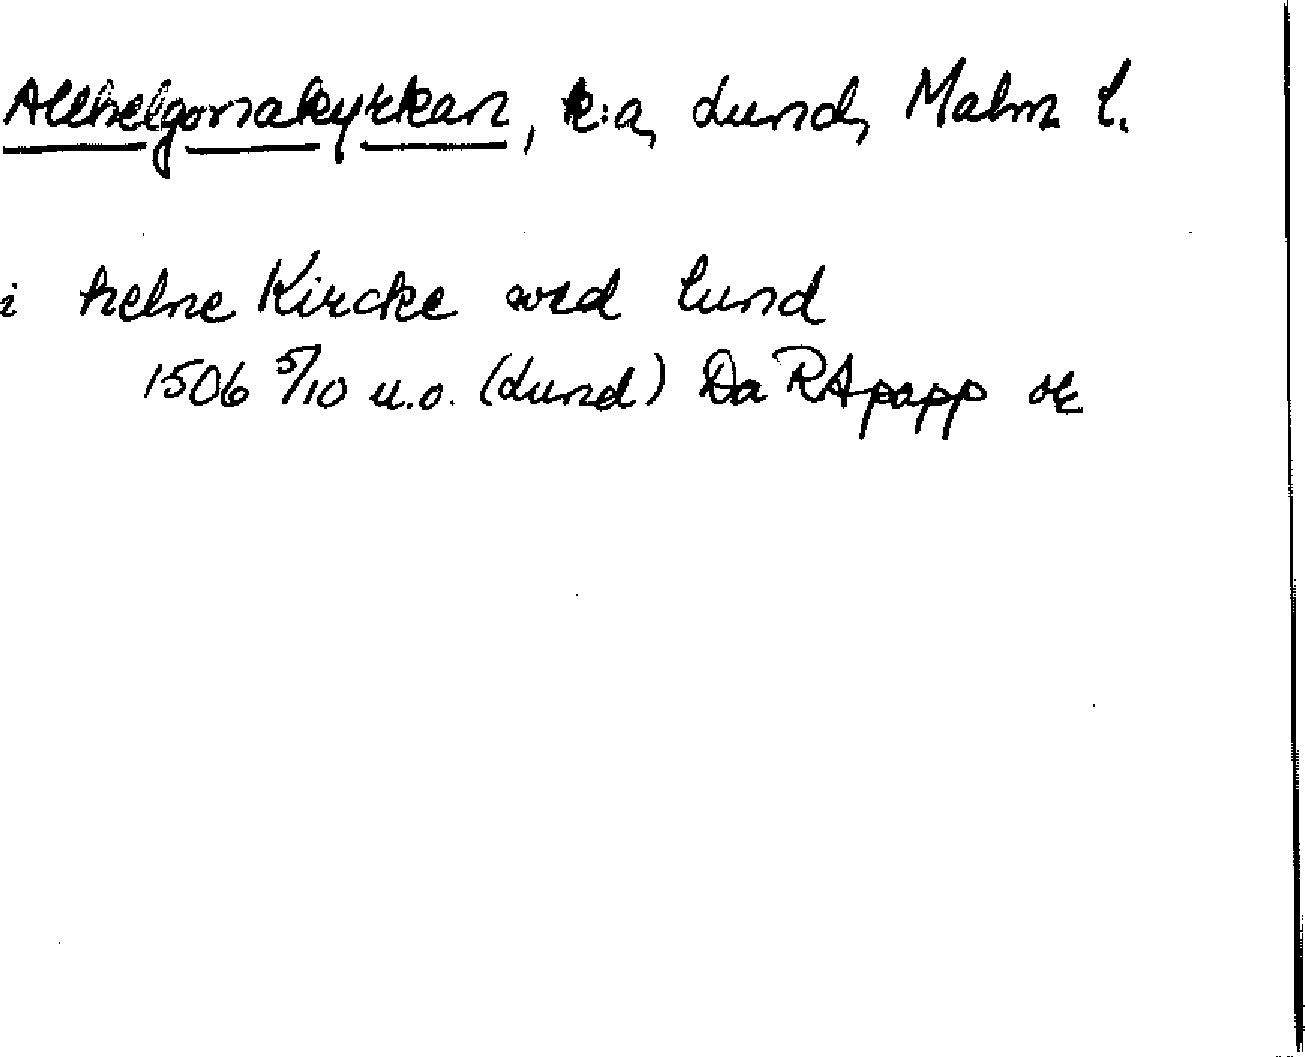 Allhelgonakyrkan, k:a, Lund, Malm l.
i helne Kircke wed lund
1506 5/10 u.o. (Lund) Da RA papp ok